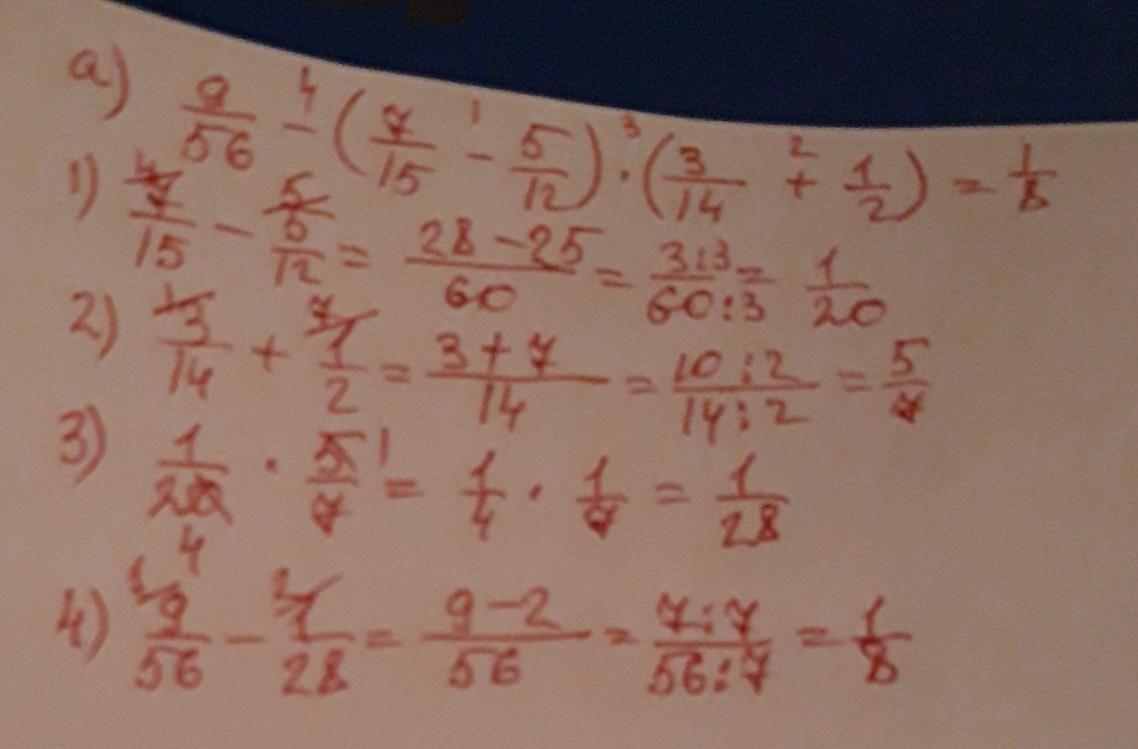 a) 9/56 - (7/15 - 5/12) · (3/14 + 1/2) = 1/8
1) 7/15 - 5/12 = 28-25/60 = 3:3/60:3 = 1/20
2) 3/14 + 1/2 = 3+7/14 = 10:2/14:2 = 5/7
3) 1/20 · 5/7 = 1/4 · 1/7 = 1/28
4) 9/56 - 1/28 = 9-2/56 = 7:7/56:7 = 1/8